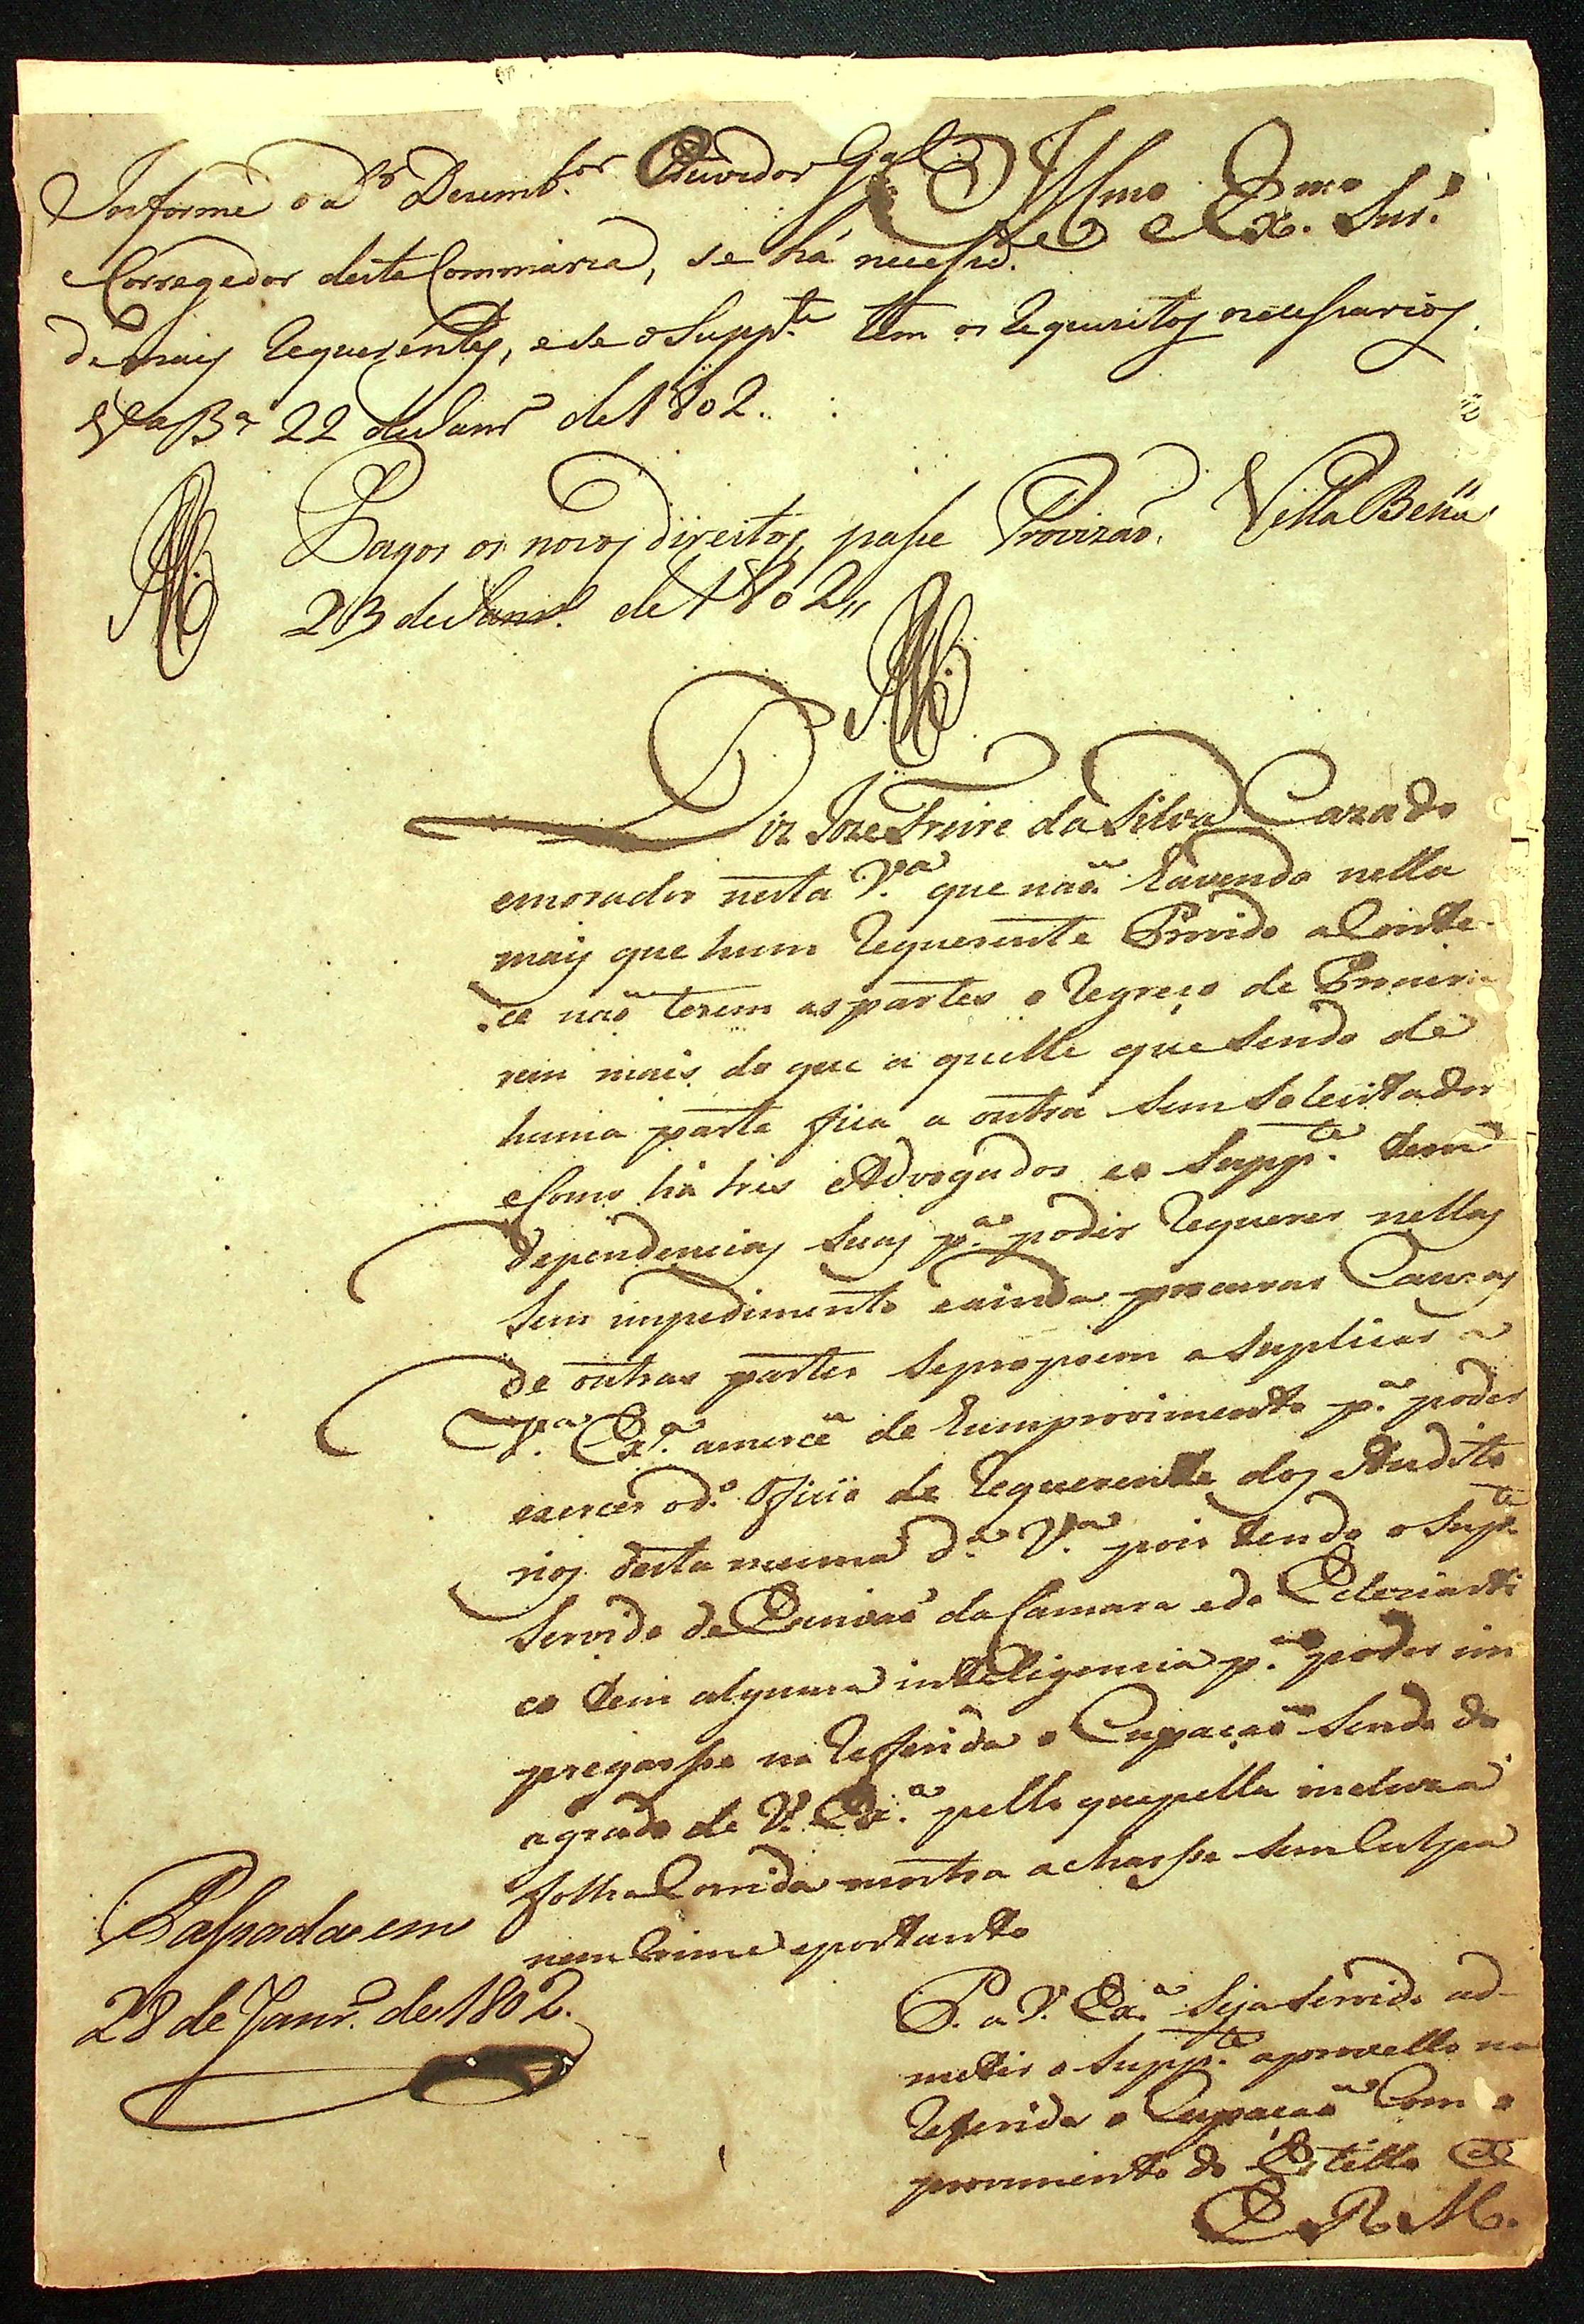 Informe o D.r Desemb.or Ouvidor G.al e
Ill.mo e Ex.mo Snr.
Corregedor desta Commarca, se há necessid.e
de mais Requerentes, e se o Supp.te tem os requezitos necessarios
V.a B.a 22 de Janr.o de 1802.
Pagos os novos direitos, passe Provizaõ. Villa Bella
23 de Janr.o de 1802,,
Diz Joze Freire da Silva Cazado
e morador nesta V.a que naõ havendo nella
mais que hum Requerente Provido aconte-
ce naõ terem as partes o regreço de
mais do que a quelle que sendo de
huma parte fica a outra sem Solecitador
e Como há tres Advogados e o Supp.te tem
dependencias suas p.a poder requerer nellas
sem impedimento e ainda procurar Cauzas
de outras partes se propoem a suplicar a
V. Ex.a a mercê de hum provimento p.a poder
exercer o d.o oficio de Requerente dos Audito
rios desta mesma d.a V.a pois tendo o Sup.te
Servido de Escrivaõ da Camara e do Ecleziasti
co tem alguma inteligencia p.a poder im
pregarsse na Refferida o Cupaçaõ sendo do
agrado de V. Ex.a pello que pella incluza
folha Corrida mostra acharsse sem Culpa
nem Crime e portanto
P. a V. Ex.a Seja servido ad-
metir o Supp.te a provello na
Referida o Cupaçaõ Com o
provimento do Estillo
E. R. M.
Passada em
28 de Janr.o de 1802.